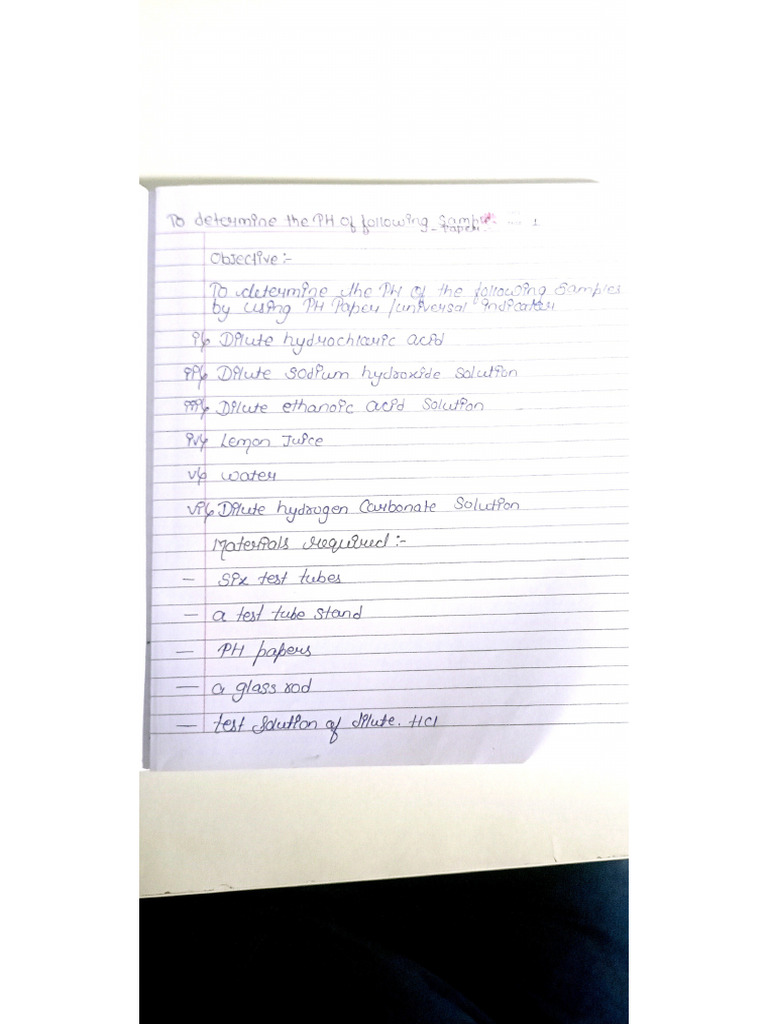 To determine the PH of following Samp
- Paper.
1
Objective:-
To determine the PH of the following Samples
by using PH Paper /universal indicator
i) Dilute hydrochloric acid
ii) Dilute sodium hydroxide solution
iii) Dilute ethanoic acid solution
iv) Lemon Juice
v) water
vi) Dilute hydrogen Carbonate Solution
Materials required:-
- Six test tubes
- a test tube stand
- PH papers
- a glass rod
- test solution of dilute. HCl